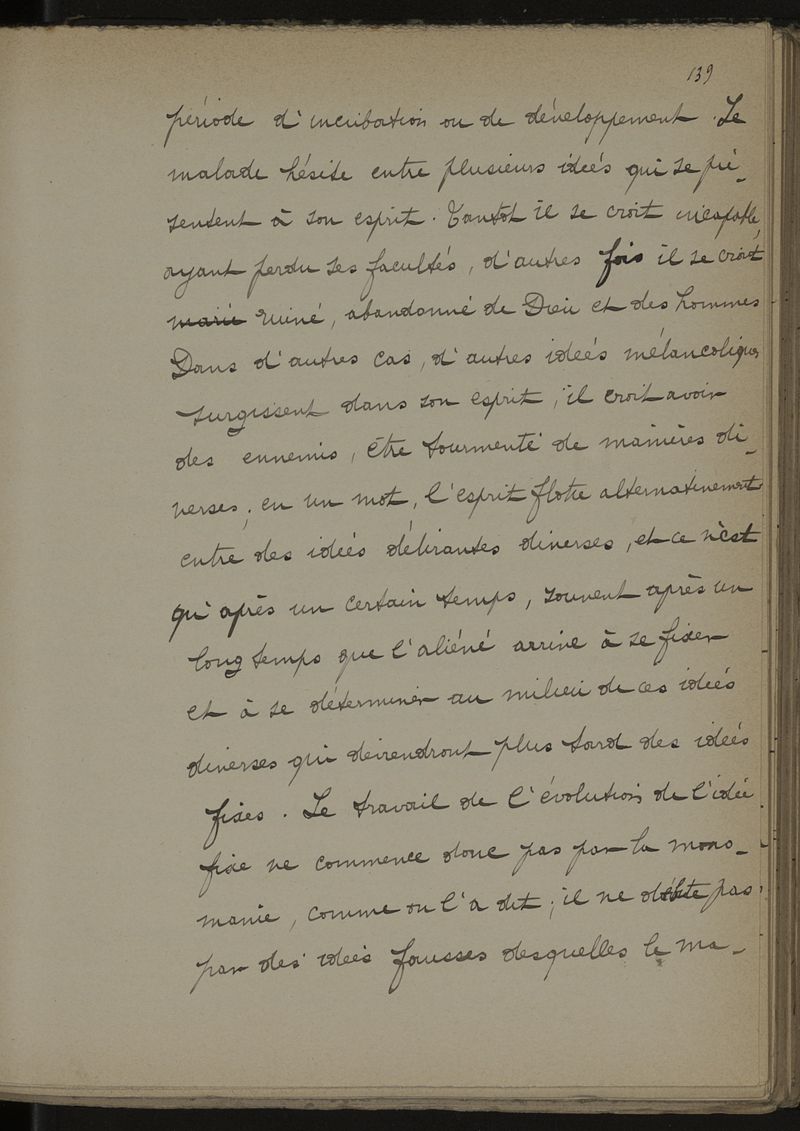 139
période d'incubation ou de développement. Le
malade hésite entre plusieurs ideés qui se pré-
sentent à son esprit. Tantôt il se croit incapable,
ayant perdu ses facultés, d'autres fois il se croit
marié ruiné, abandonné de Dieu et des hommes
Dans d'autres cas, d'autres ideés mélancoliques
surgissent dans son esprit, il croit avoir
des ennemis, être tourmenté de manières di-
verses; en un mot, l'esprit flotte alternativement
entre des ideés délirantes diverses, et ce n'est
qu'après un certain temps, souvent après un
long temps que l'aliéné arrive à se fixer
et à se déterminer au milieu de ces ideés
diverses qui deviendront plus tard des ideés
fixes. Le travail de l'évolution de l'idée
fixe ne commence donc pas par la mono-
manie, comme on l'a dit; il ne débute pas
par des ideés fausses desquelles le ma-